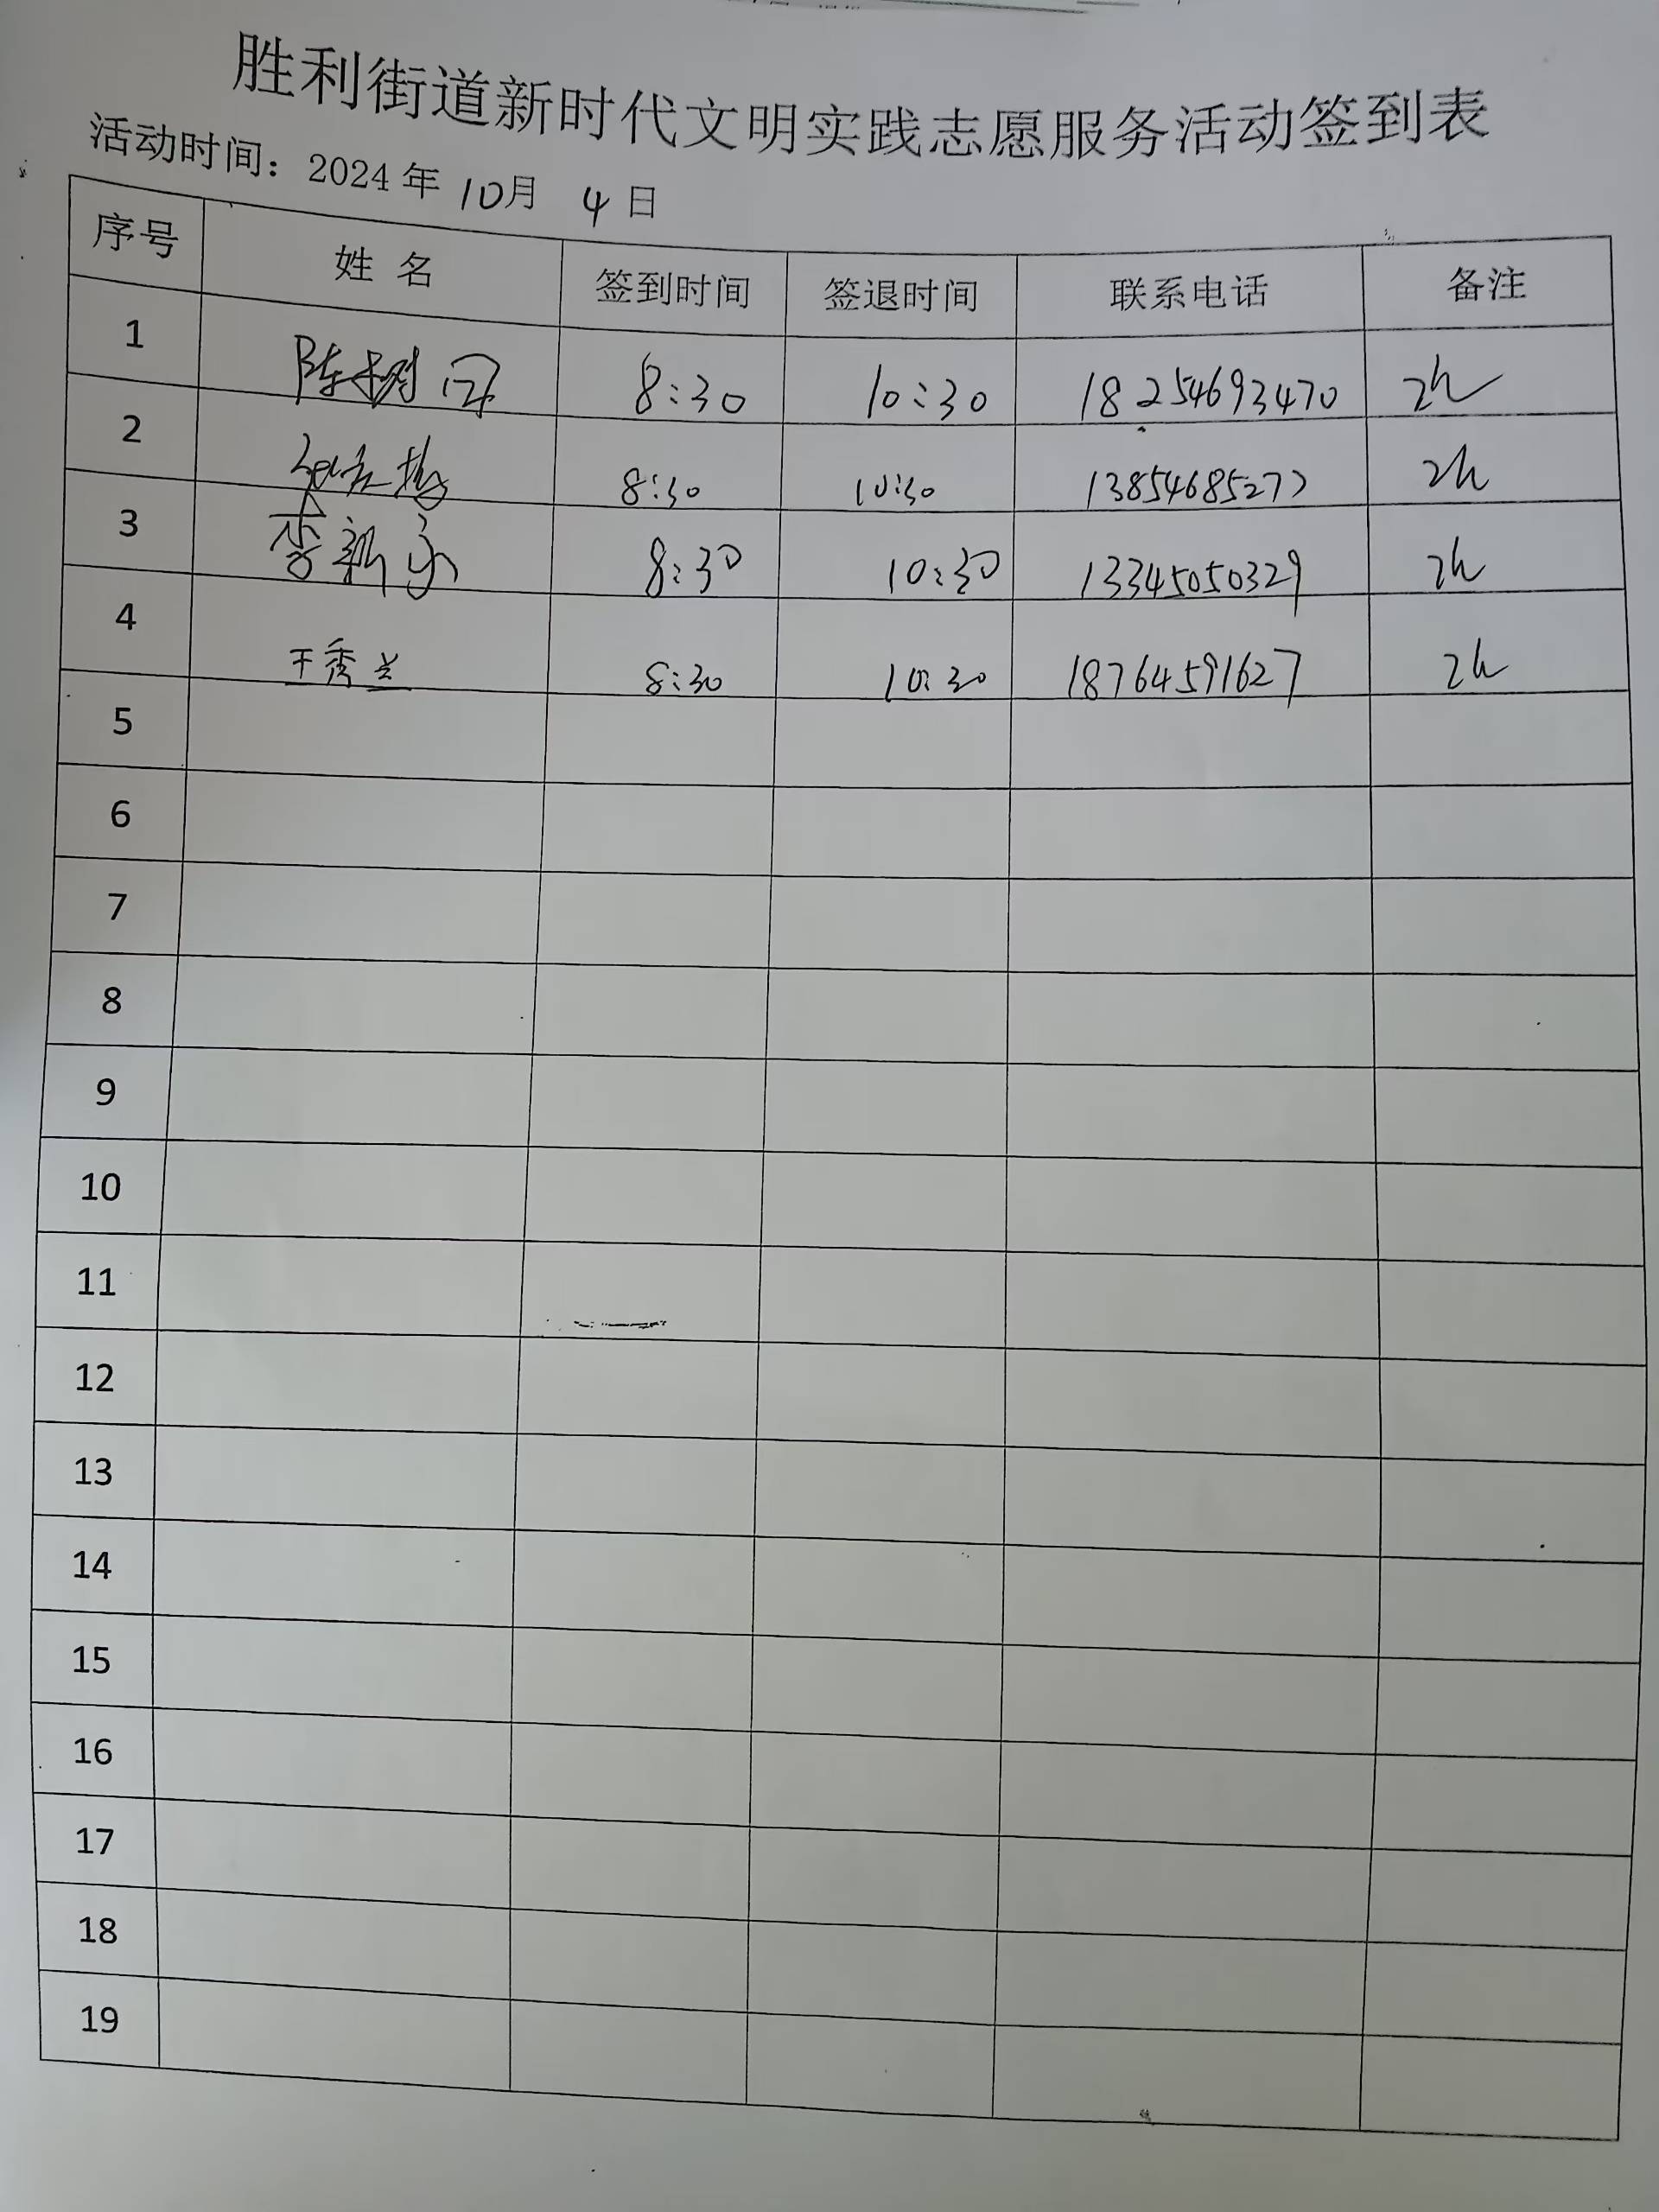 胜利街道新时代文明实践志愿服务活动签到表
活动时间：2024 年 10月 4 日
序号 姓 名 签到时间 签退时间 联系电话 备注
1 陈树 8:30 10:30 18254693470 2h
2 8:30 10:30 13854685277 2h
3 李新 8:30 10:30 13345050329 2h
4 王秀兰 8:30 10:30 18764591627 2h
5
6
7
8
9
10
11
12
13
14
15
16
17
18
19